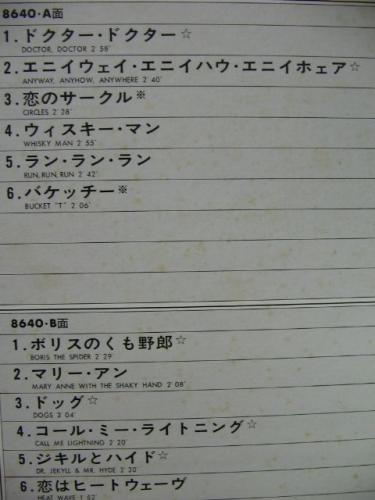 8640・A面
1.ドクター・ドクター☆
DOCTOR, DOCTOR 2′58″
2.エニイウェイ・エニイハウ・エニイホェア☆
ANYWAY, ANYHOW, ANYWHERE 2′40″
3.恋のサークル※
CIRCLES 2′28″
4.ウィスキー・マン
WHISKY MAN 2′55″
5.ラン・ラン・ラン
RUN, RUN, RUN 2′42″
6.バケッチー※
BUCKET "T" 2′06″
8640・B面
1.ボリスのくも野郎☆
BORIS THE SPIDER 2′29″
2.マリー・アン
MARY ANNE WITH THE SHAKY HAND 2′08″
3.ドッグ☆
DOGS 3′04″
4.コール・ミー・ライトニング☆
CALL ME LIGHTNING 2′20″
5.ジキルとハイド☆
DR. JEKYLL & MR. HYDE 2′20″
6.恋はヒートウェーヴ
HEAT WAVE 1′52″